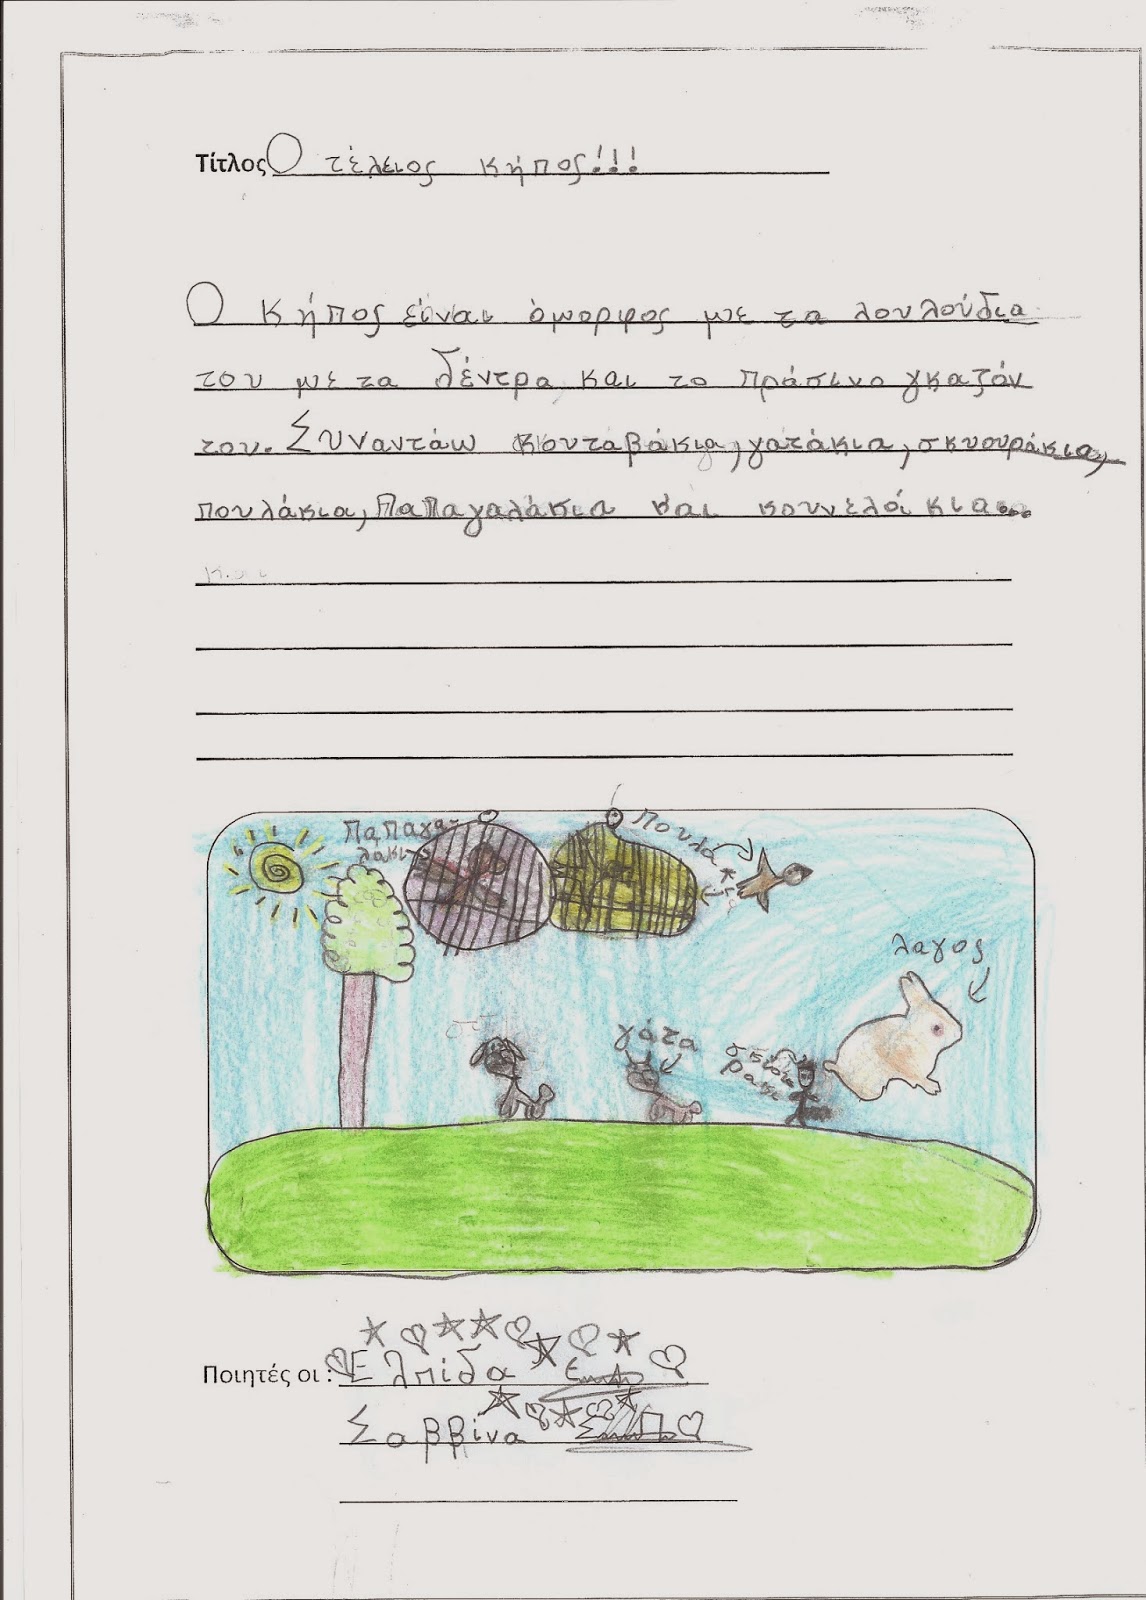 Τίτλος Ο τέλειος κήπος!!!
Ο κήπος είναι όμορφος με τα λουλούδια
του με τα δέντρα και το πράσινο γκαζόν
του. Συναντάω κουταβάκια, γατάκια, σκυουράκια,
πουλάκια, παπαγαλάκια και κουνελάκια...
και
Παπαγα-
λάκι
Πουλάκι
λαγος
γάτα
σκιου
ρακι
Ποιητές οι : Ελπίδα
Σαββίνα